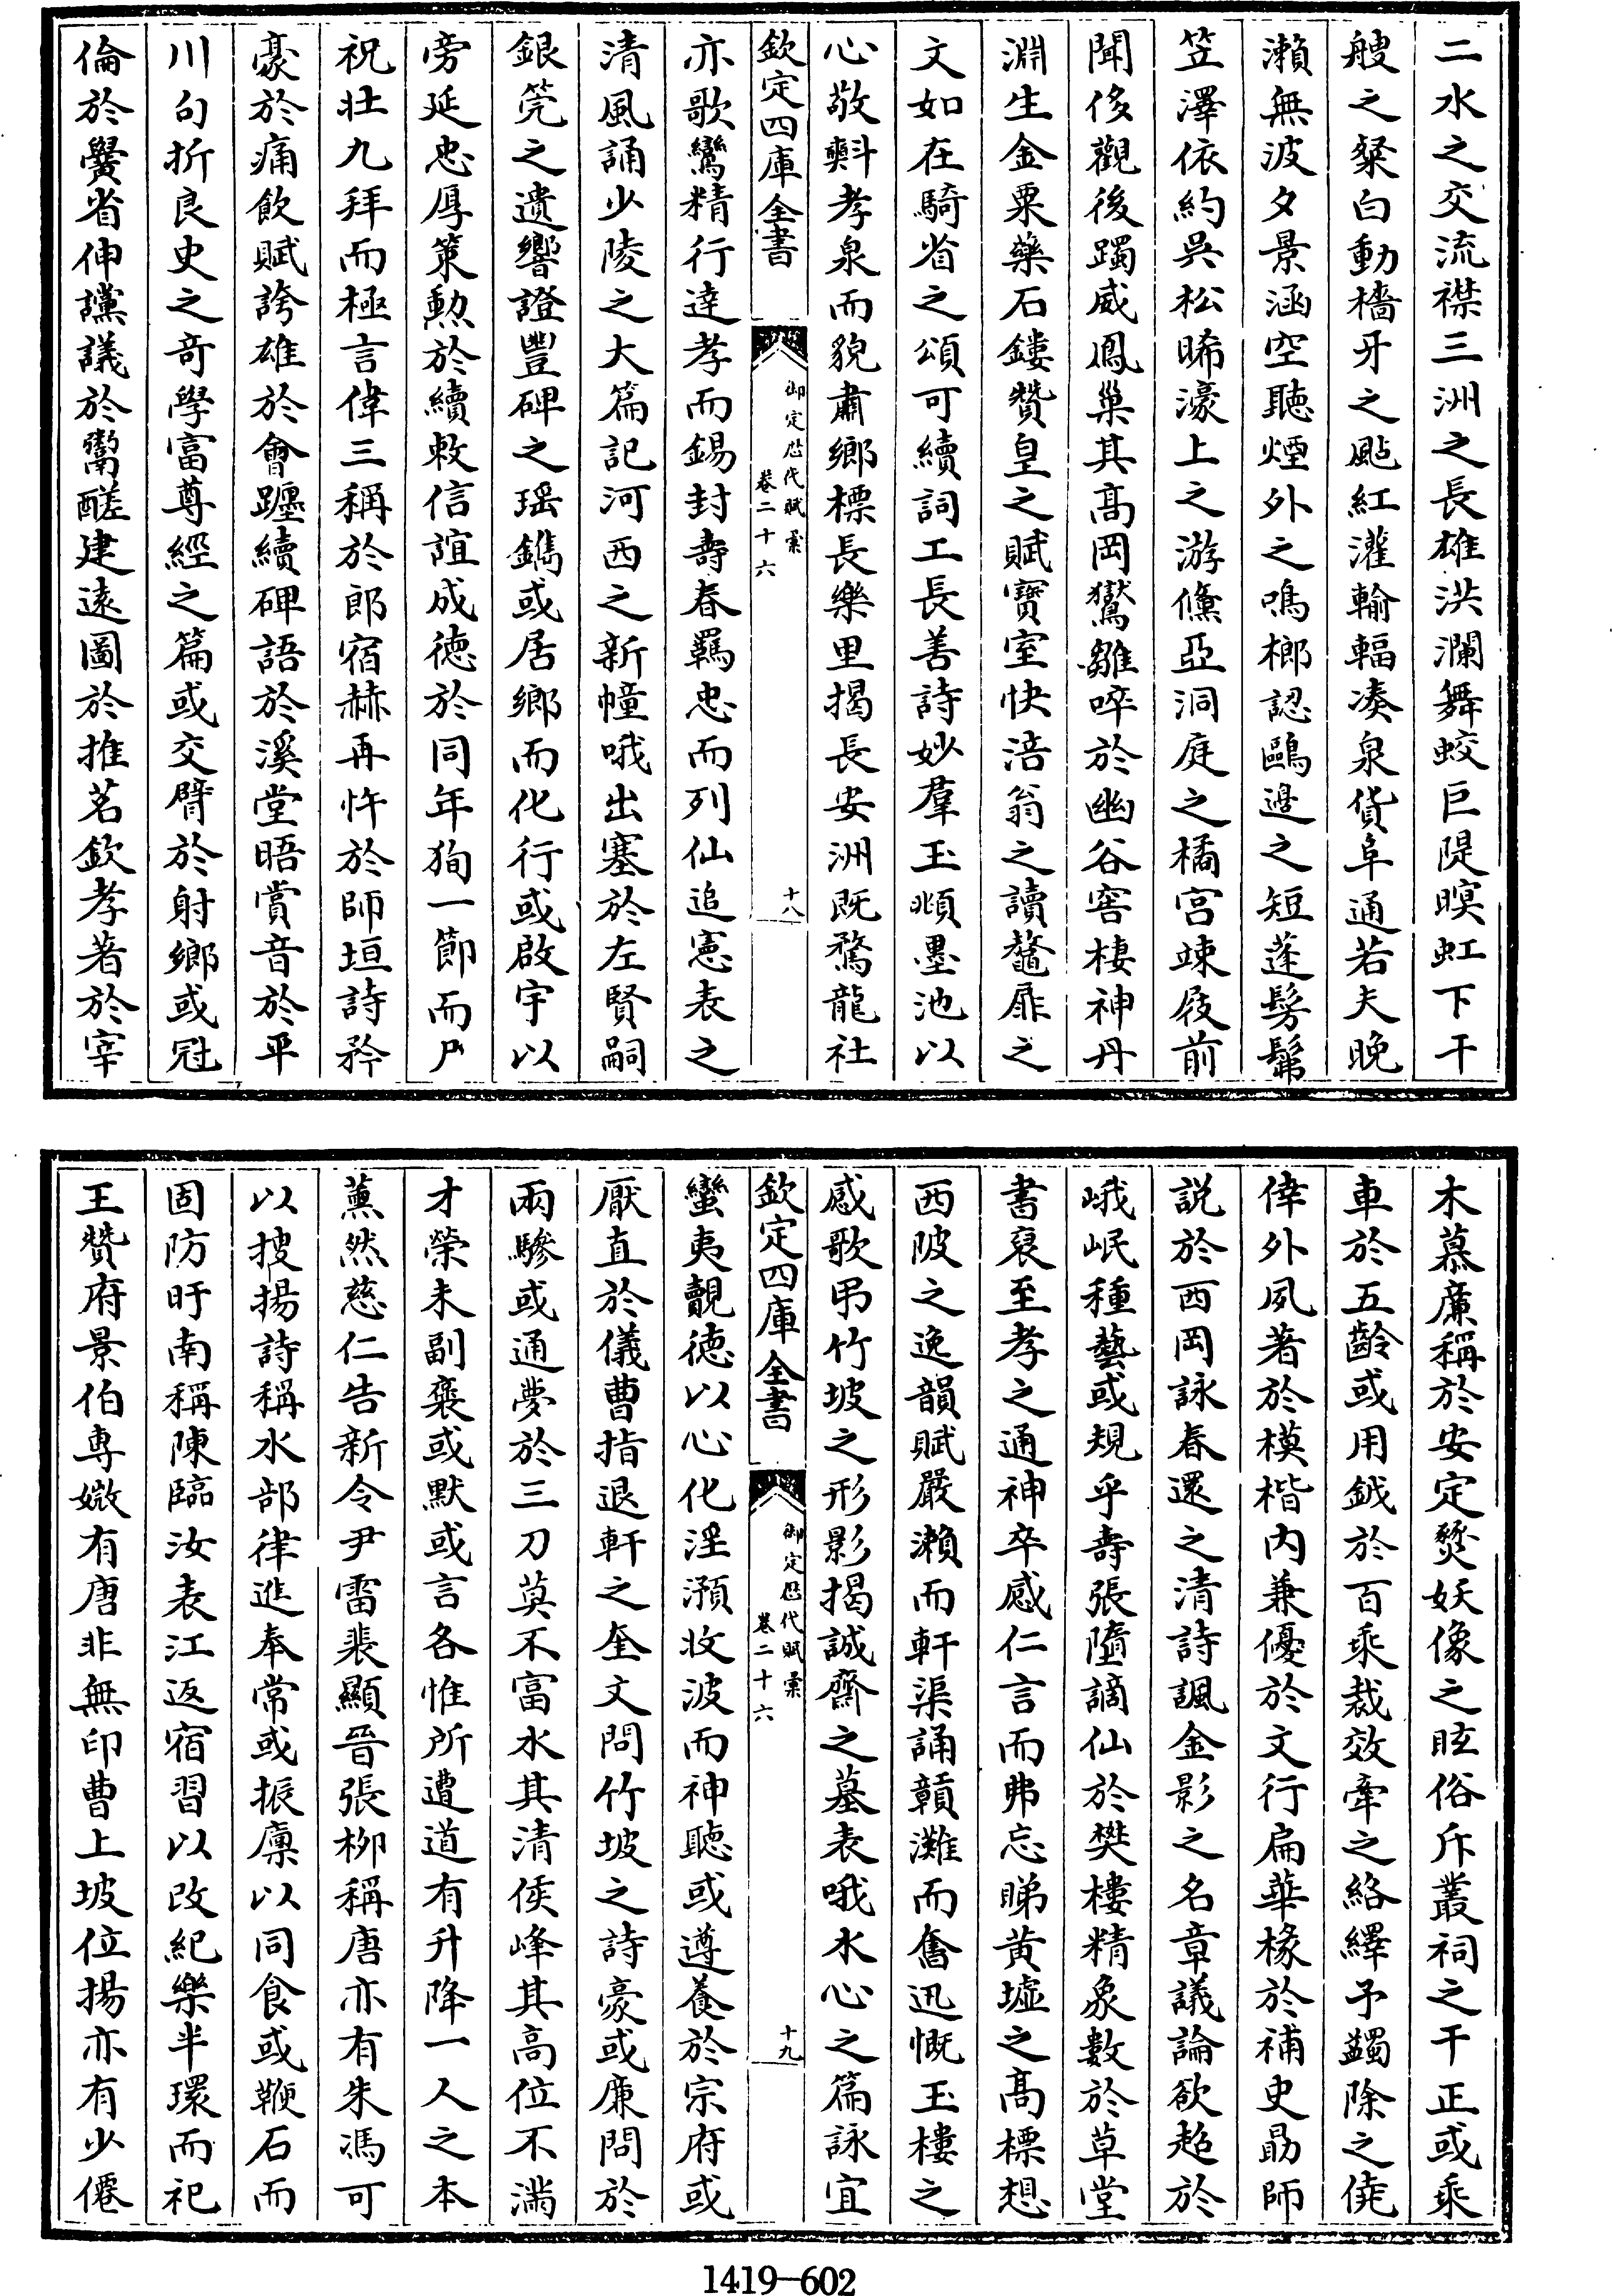 二水之交流襟三洲之長雄洪瀾舞蛟巨隄暝虹下干
艘之粲白動檣牙之颭紅灌輸輻湊泉貨阜通若夫晚
瀨無波夕景涵空聽煙外之鳴榔認鷗邊之短蓬髣髴
笠澤依約吳松晞濠上之游儵亞洞庭之橘宫竦屐前
聞侈觀後躅威鳳巢其髙岡鸑雛啐於幽谷窖棲神丹
淵生金粟藥石鏤贊皇之賦寳室快涪翁之讀鼇扉之
文如在騎省之頌可續詞工長善詩妙羣玉頫墨池以
心敬㪺孝泉而貌肅鄉標長樂里揭長安洲既騖龍社
欽定四庫全書
御定歴代賦彚
卷二十六
十八
亦歌鸞精行達孝而錫封壽春羈忠而列仙追憲表之
清風誦少陵之大篇記河西之新幢哦出塞於左賢嗣
銀筦之遺響證豐碑之瑶鐫或居鄉而化行或啟宇以
旁延忠厚策勲於續敕信誼成徳於同年狥一節而尸
祝壯九拜而極言偉三稱於郎宿赫再忤於師垣詩矜
豪於痛飲賦誇雄於會躔續碑語於溪堂晤賞音於平
川句折良史之竒學富尊經之篇或交臂於射鄉或冠
倫於黌省伸讜議於鬻醝建遠圖於推茗欽孝著於宰
木慕亷稱於安定爕妖像之眩俗斥叢祠之干正或乘
車於五齡或用鉞於百乘裁效牽之絡繹予蠲除之僥
倖外夙著於模楷内兼優於文行扁華椽於補史勗師
説於西岡詠春還之清詩諷金影之名章議論欲超於
峨岷種藝或規乎壽張隨謫仙於樊樓精象數於草堂
書裒至孝之通神卒感仁言而弗忘睇黄墟之髙標想
西陂之逸韻賦嚴瀨而軒渠誦贛灘而奮迅慨玉樓之
感歌弔竹坡之形影揭誠齋之墓表哦水心之篇詠宜
欽定四庫全書
御定歴代賦彚
卷二十六
十九
蠻夷覿徳以心化淫澦收波而神聽或遵養於宗府或
厭直於儀曹指退軒之奎文問竹坡之詩豪或廉問於
兩驂或通夢於三刀莫不富水其清侯峰其高位不滿
才榮未副襃或默或言各惟所遭道有升降一人之本
薫然慈仁告新令尹雷裴顯晉張栁稱唐亦有朱馮可
以搜揚詩稱水部律進奉常或振廩以同食或鞭石而
固防盱南稱陳臨汝表江返宿習以改紀樂半環而祀
王贊府景伯専媺有唐非無印曹上坡位揚亦有少僊
1419—602